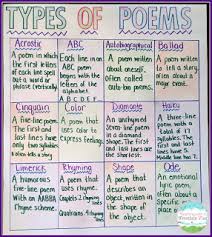 TYPES OF POEMS
Acrostic
A poem in which
the first letters
of each line spell
out a word or
phrase (vertically)
ABC
Each line in an
ABC poem
begins with the
letters of the
alphabet.
A B C D E F
Autobiographical
A poem written
about oneself,
often called
auto-bio poems.
Ballad
A poem written
to tell a story,
often about a
major event.
Cinquain
A five-line poem.
The first and last
lines have only
two syllables.
Color
Poems that
uses color to
express feelings.
Diamonte
An unrhymed
seven-line poem
in a diamond
shape. The first
and last lines
are the shortest.
Haiku
A three-lined
poem with a
total of 17
syllables. The
first and last
lines only
have 5.
Limerick
A humorous
five-line poem
with an AABBA
rhyme scheme.
Rhyming
Couplets 2 rhyming lines
Quatrains 4 rhyming
Shape
A poem that
describes an
object, written
in the shape of
the object.
Ode